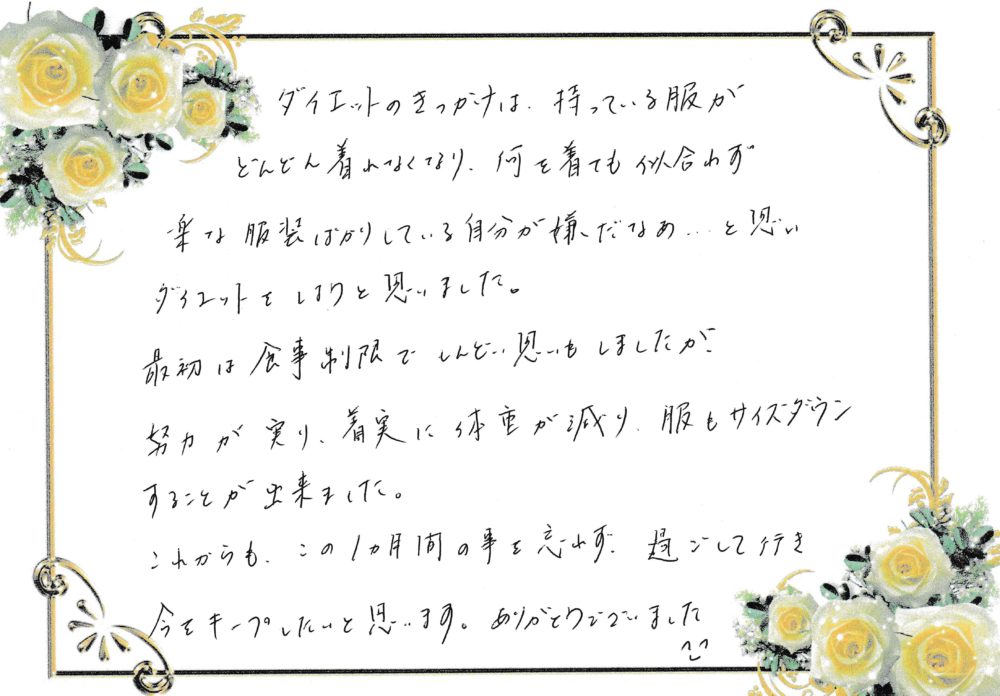 ダイエットのきっかけは、持っている服が
どんどん着れなくなり、何を着ても似合わず
楽な服装ばかりしている自分が嫌だなあ…と思い
ダイエットをしようと思いました。
最初は食事制限でしんどい思いもしましたが、
努力が実り、着実に体重が減り、服もサイズダウン
することが出来ました。
これからも、この1ヵ月間の事を忘れず、過ごして行き
今をキープしたいと思います。ありがとうございました